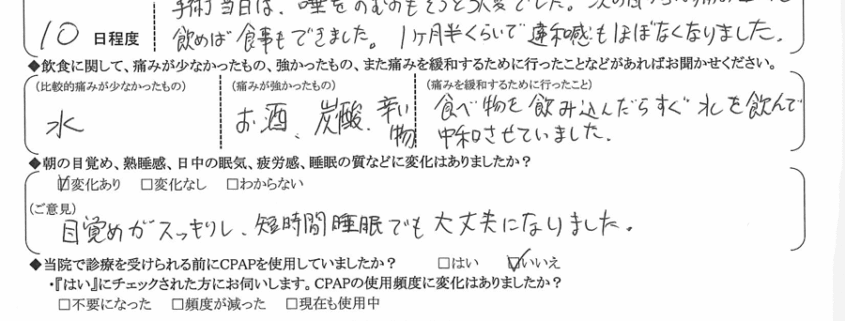 手術当日は、唾をのむのもそうとう大変でした。
10 日程度
飲めば食事もできました。1ヶ月半くらいで違和感もほぼなくなりました。
◆飲食に関して、痛みが少なかったもの、強かったもの、また痛みを緩和するために行ったことなどがあればお聞かせください。
(比較的痛みが少なかったもの) (痛みが強かったもの) (痛みを緩和するために行ったこと)
水
お酒、炭酸、辛い物
食べ物を飲み込んだらすぐ水を飲んで
中和させていました。
◆朝の目覚め、熟睡感、日中の眠気、疲労感、睡眠の質などに変化はありましたか?
☑変化あり □変化なし □わからない
(ご意見)
目覚めがスッキリし、短時間睡眠でも大丈夫になりました。
◆当院で診療を受けられる前にCPAPを使用していましたか? □はい ☑いいえ
・『はい』にチェックされた方にお伺いします。CPAPの使用頻度に変化はありましたか?
□不要になった □頻度が減った □現在も使用中